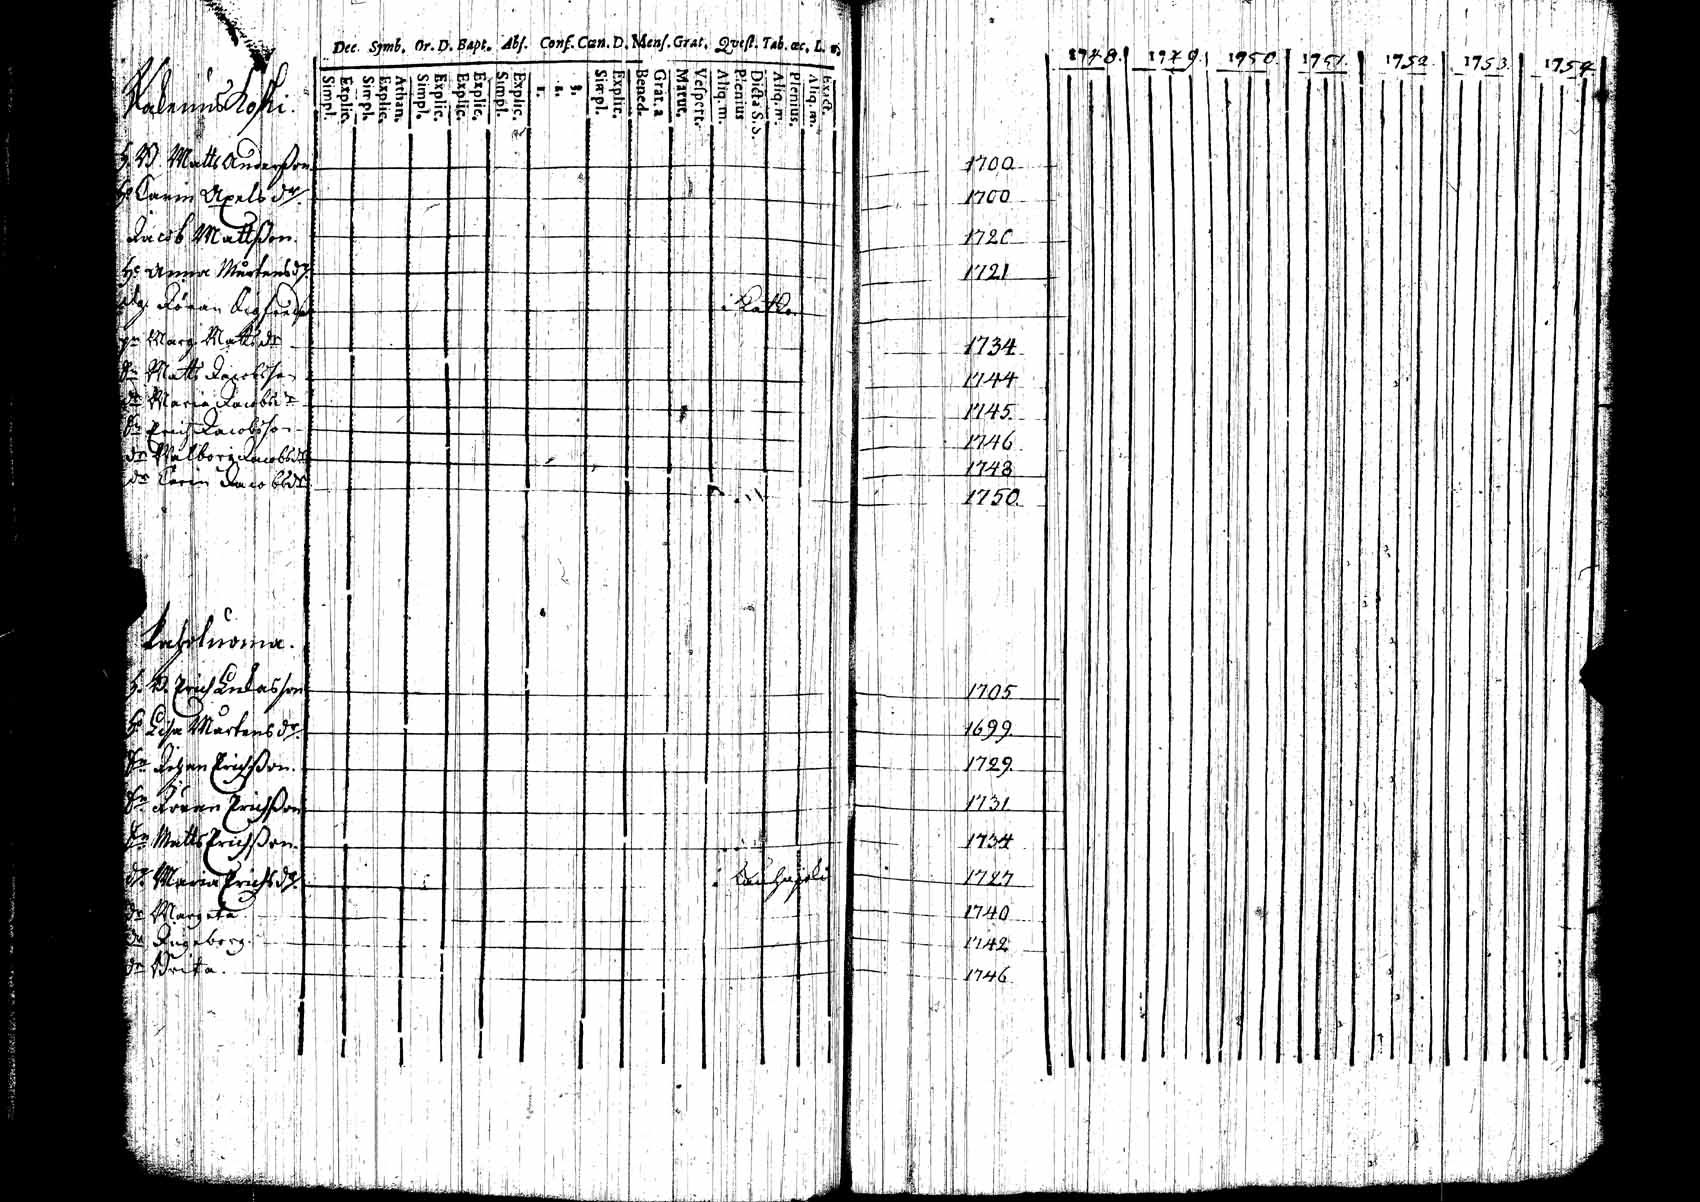 Dec. Symb. Or. D. Bapt. Abs. Conf. Cœn. D. Mens. Grat. Quest. Tab. œc. L. n.
Simpl. Explic. Simpl. Explic. Athan. Simpl. Explic. Explic. Explic. Simpl. Explic. 1. 2. 3. Simpl. Explic. Bened. Grat. a Matut. Vespert. Aliq. m. Plenius Dicta S. S. Aliq. m. Plenius. Aliq. m. Exact.
1748. 1749. 1750. 1751. 1752. 1753. 1754
Koski.
h. B. Matts Anderßon 1700
Hu Carin Axels dr. 1700
Jacob Mattßon. 1720
Hu Anna Mårtens dr. 1721
Göran Sigfreds
Marg. Matts dr 1734
Sn Matts Jacobsson 1744
dr Maria Jacobs dr 1745
Sn Erich Jacobsson 1746
dr Walborg Jacobs dr 1748
dr Carin Jacobs dr 1750
h. B. Erich Lucasson 1705
Hu Lisa Mårtens dr. 1699
Sn Johan Erichßon. 1729
Sn Göran Erichßon 1731
Sn Matts Erichßon. 1734
dr. Maria Erichs dr. i 1727
dr Margeta 1740
dr Ingeborg 1742
dr Brita. 1746